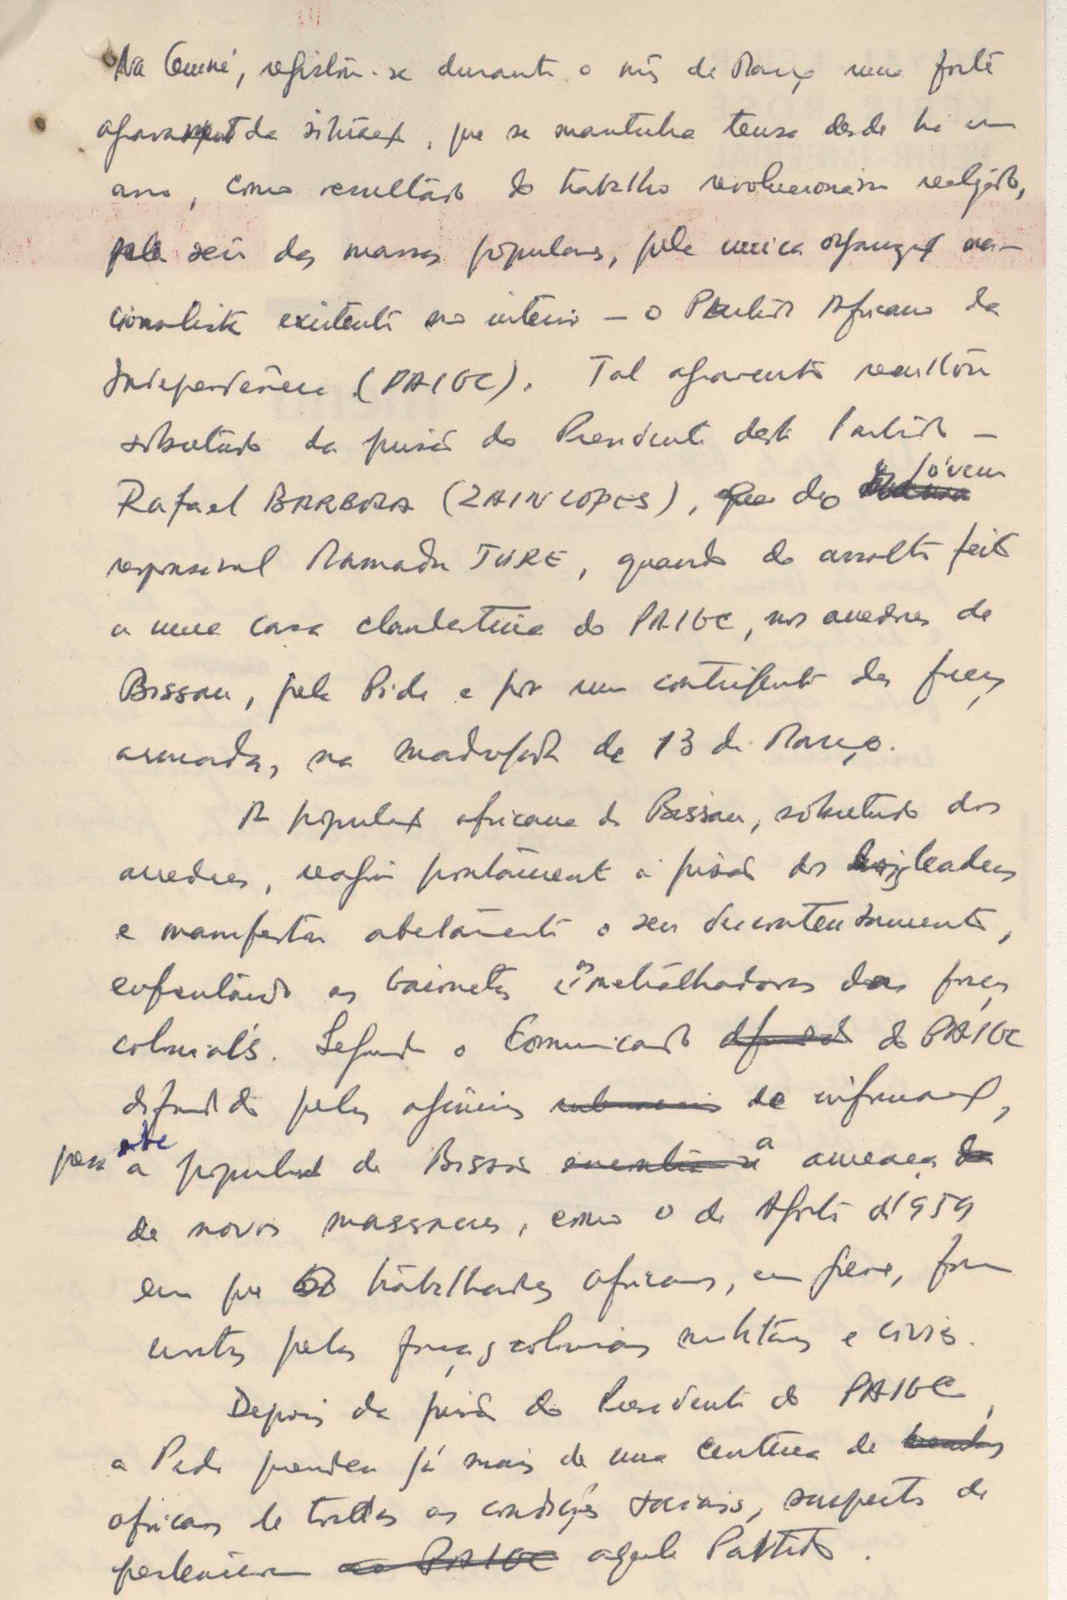 Na Guiné, registou-se durante o mês de Março uma forte
agravament da situaçx, que se mantinha tensa desde há um
ano, como resultado do trabalho revolucionário realizado,
seio das massas populares, pela única organizaçx na-
cionalista existente no interior — o Partido Africano da
Independência (PAIGC). Tal agravamento resultou
sobretudo da prisão do Presidente deste Partido —
Rafael BARBOSA (ZAIN LOPES), e do jóvem
responsável Mamadu TURE, quando do assalto feito
a uma casa clandestina do PAIGC, nos arredores de
Bissau, pela Pide e por um contingente das forças
armadas, na madrugada de 13 de Março.
A populaçx africana de Bissau, sobretudo dos
arredores, reagiu prontamente à prisão dos leaders
e manifestou abertamente o seu descontentamento,
enfrentando as baionetas e as metralhadoras das forças
coloniais. Segundo o Comunicado do PAIGC
difundido pelas agências de informaçx,
pesa sobre a populaçx de Bissau a ameaça
de novos massacres, como o de Agosto de 1959
em que trabalhadores africanos, em greve, foram
mortos pelas forças coloniais militares e civis.
Depois da prisão do Presidente do PAIGC,
a Pide prendeu já mais de uma centena de
africanos de todas as condições sociais, suspeitos de
pertencerem aquele Partido.